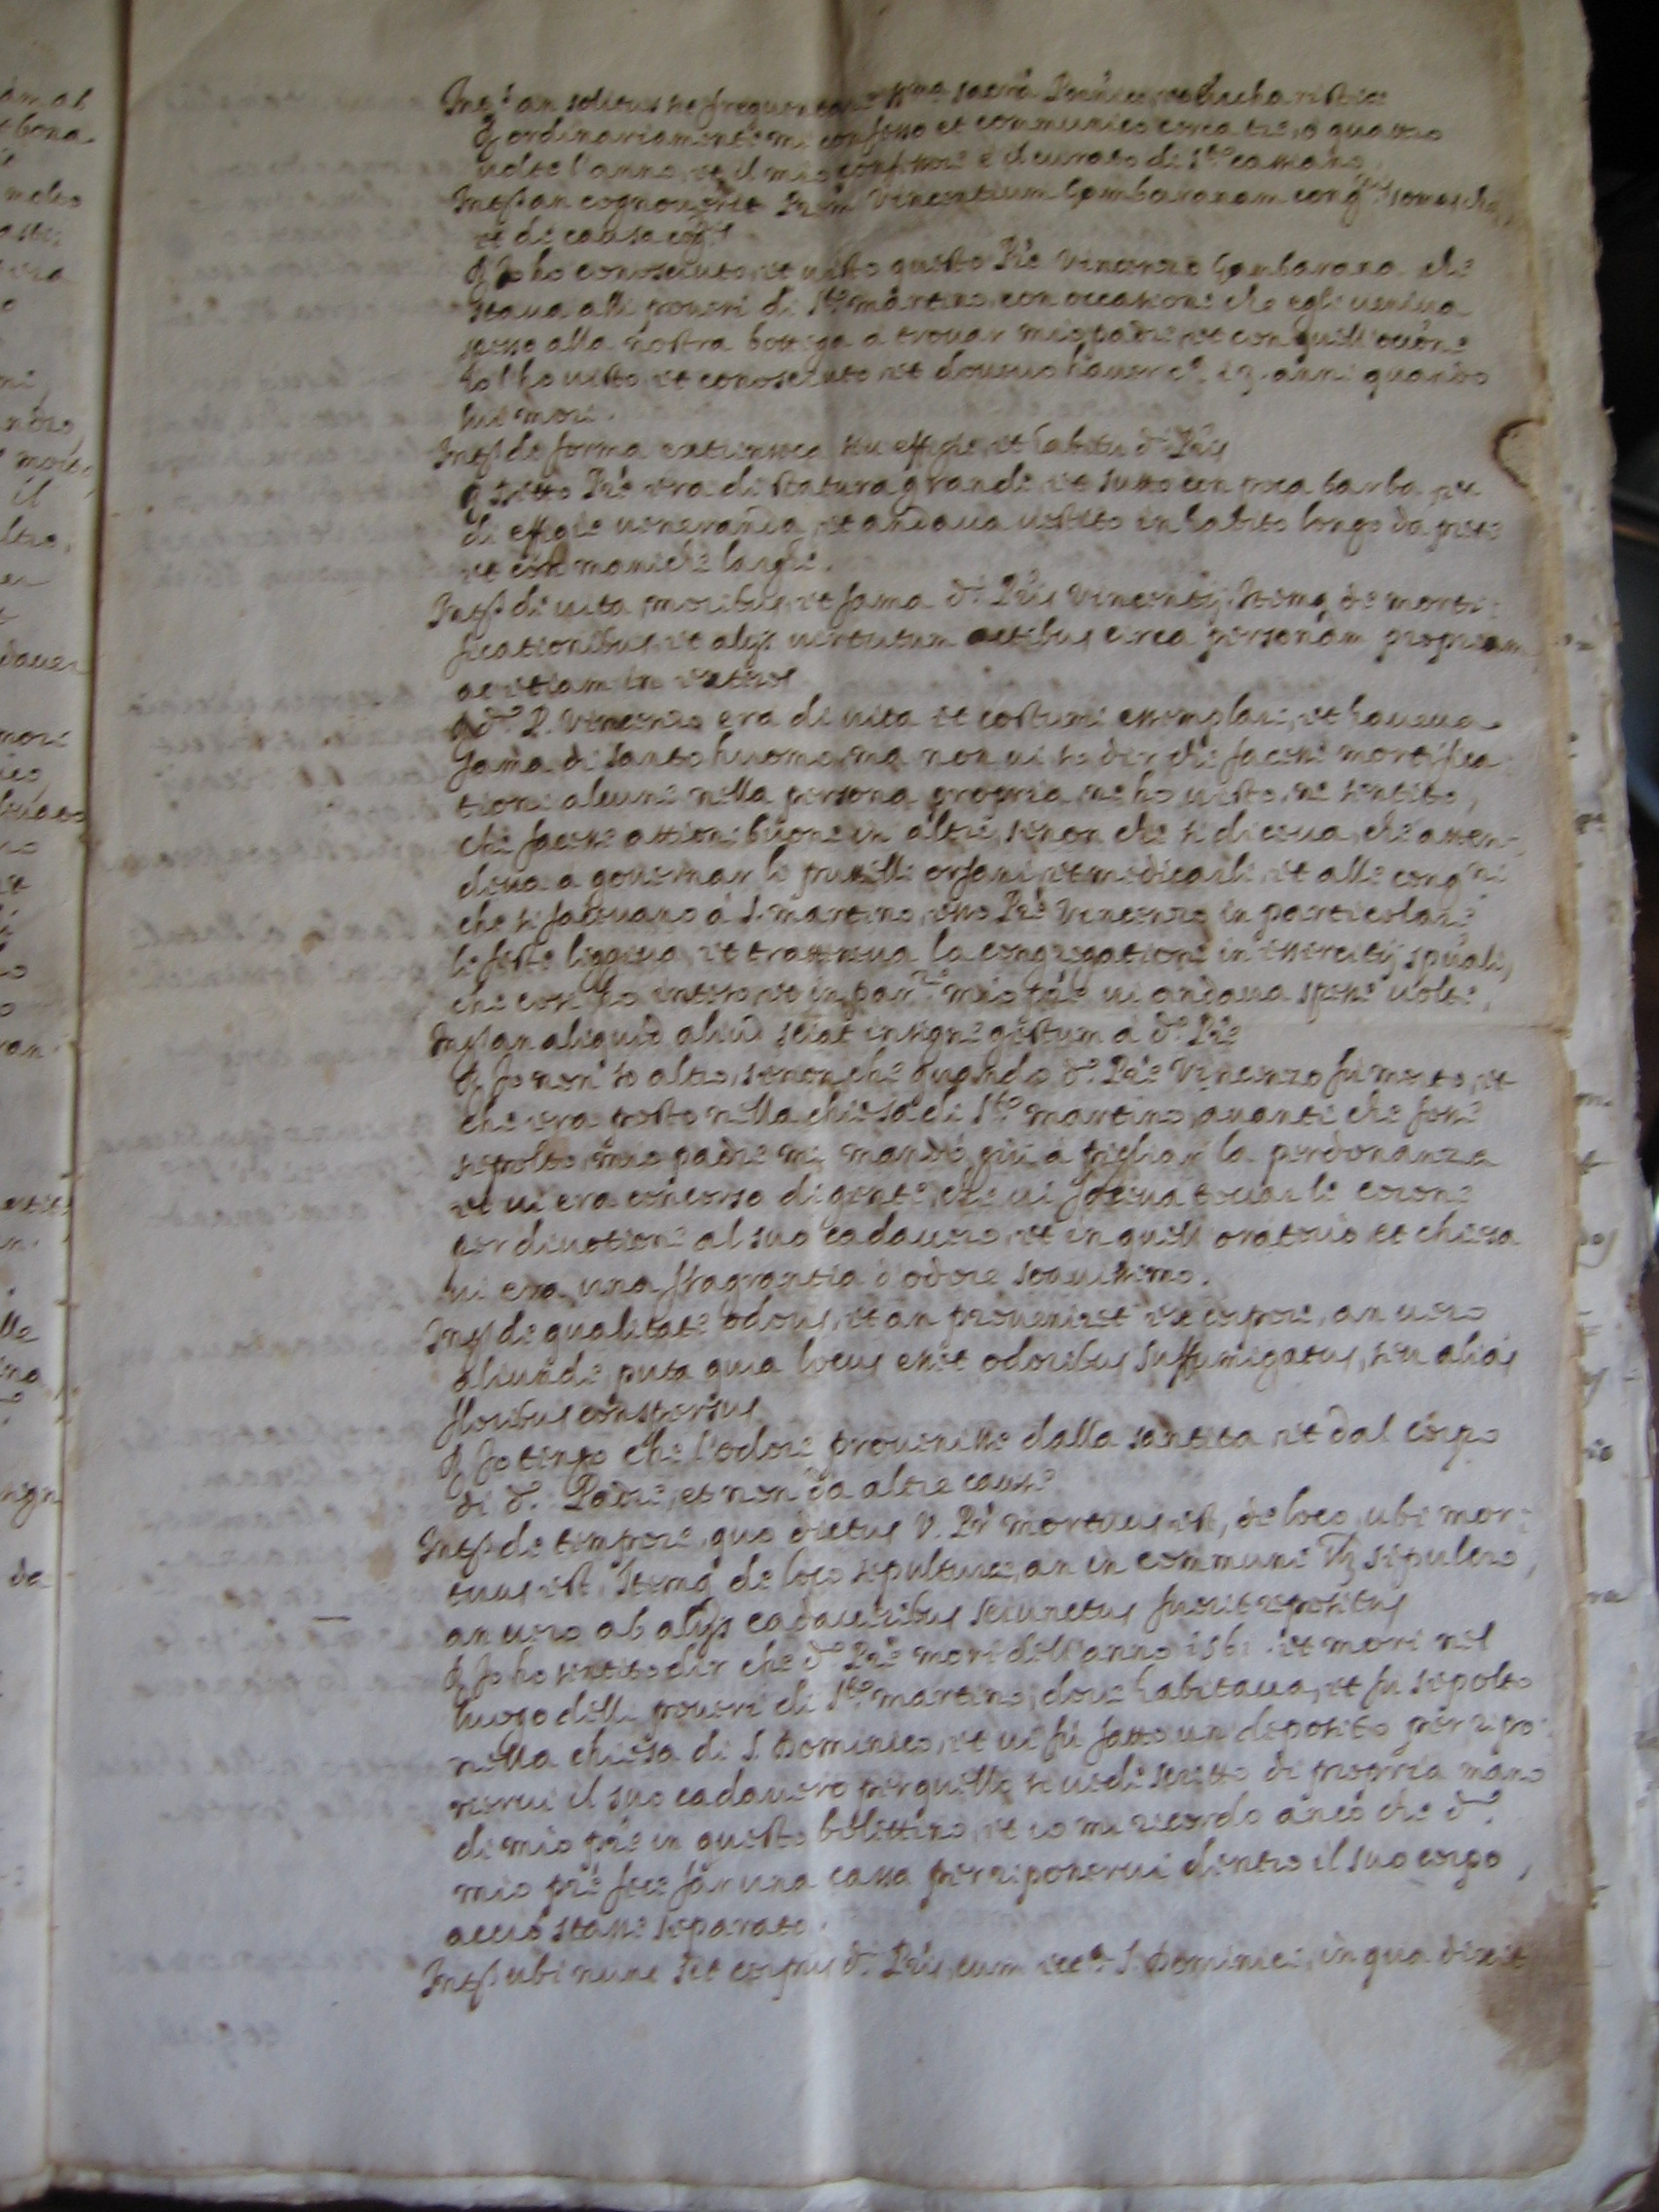 Int.s an solitus sit frequentare ss.ma sacra Poenitentiae, et Eucharistiae
R. ordinariamente mi confesso et communico cerca tre, o quattro
volte l'anno, et il mio confessore è il curato di S.to Cassiano
Int.s an cognoverit P.rem Vincentium Gambaranam cong.nis somaschae,
et de causa cog.nis
R. Io ho conosciuto, et visto questo P.re Vincenzo Gambarana che
stava alli poveri di S.to Martino, con occasione che egli veniva
spesso alla nostra bottega a trovar mio padre, et con quell'occ.one
io l'ho visto, et conosciuto, et dovevo haver c.a 13. anni quando
lui morì.
Int.s de forma extrinseca seu effigie, et habitu d.i P.ris
R. detto P.re era di statura grande, et sutto con poca barba, et
di effigie veneranda, et andava vestito in habito longo da prete
et con maniche larghe.
Int.s de vita, moribus, et fama d.i P.ris Vincentij. Itemq. de morti-
ficationibus, et alijs virtutum actibus circa personam propriam
ac etiam in exteros
R. d.o P. Vincenzo era di vita et costumi essemplari, et haveva
fama di santo huomo, ma non vi so dir che facesse mortifica-
tione alcune nella persona propria, ne ho visto, ne sentito,
che facesse attioni buone in altri, senon che si diceva, che atten-
deva a governar li puttelli orfani, et medicarli, et alle cong.ni
che si facevano à S. Martino, esso P.re Vincenzo in particolare
le feste leggeva, et tratteneva la congregatione in essercitij sp.uali,
che così ho inteso, et in par.re mio p.re vi andava spesse volte.
Int.s an aliquid aliud sciat insigne gestum a d.o P.re
R. Io non so altro, senon che quando d.o P.re Vincenzo fù morto, et
che era posto nella chiesa di S.to Martino, avanti che fosse
sepolto, mio padre mi mandò giù à pigliar la perdonanza
et vi era concorso di gente, che vi faceva toccar le corone
per divotione al suo cadavero, et in quell'oratorio et chiesa
vi era una fragrantia d'odore soavissimo.
Int.s de qualitate odoris, et an proveniret ex corpore, an vero
aliunde, puta quia locus esset odoribus suffumigatus, seu alias
floribus conspersus
R. Io tengo che l'odore provenisse dalla santità, et dal corpo
di d.o Padre, et non da altre cause
Int.s de tempore, quo dictus V. P.r mortuus est, de loco, ubi mor-
tuus est, Itemq. de loco sepulturae, an in communi sepulcro,
an vero ab alijs cadaveribus seiunctus fuerit repositus
R. Io ho sentito dir che d.o P.re morì dell'anno 1561. et morì nel
luogo delli poveri di S.to Martino, dove habitava, et fu sepolto
nella chiesa di S. Dominico, et vi fù fatto un deposito per ripo-
nervi il suo cadavero per quello si vede scritto di propria mano
di mio p.re in questo bolettino, et io mi ricordo ancò che d.o
mio p.re fece far una cassa per riponervi dentro il suo corpo,
acciò stasse separato.
Int.s ubi nunc sit corpus d.i P.ris, cum ecc.a S. Dominici, in qua dixit